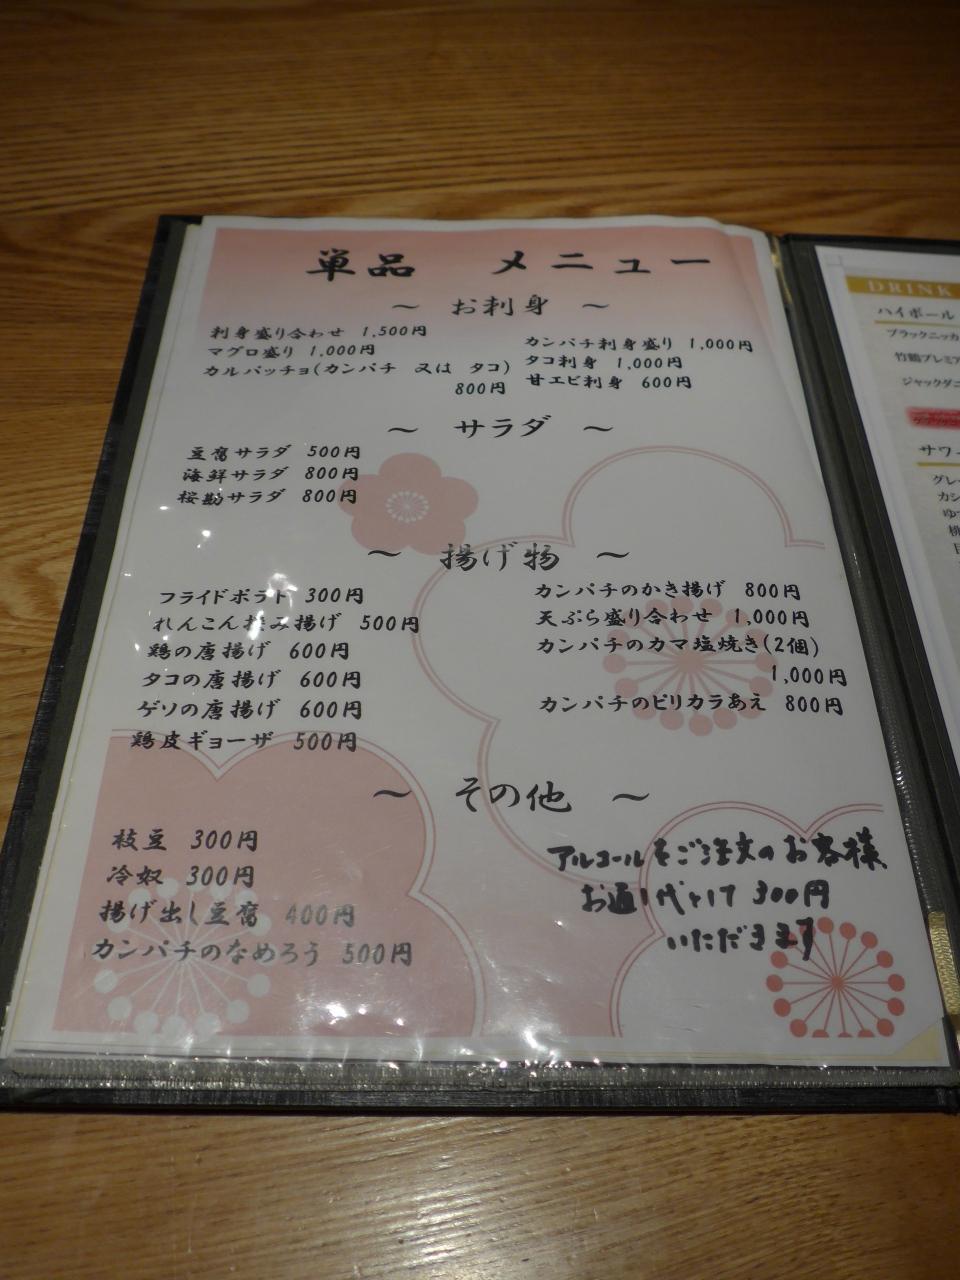 単品 メニュー
～ お刺身 ～
刺身盛り合わせ 1,500円
マグロ盛り 1,000円
カルパッチョ(カンパチ 又は タコ)
800円
カンパチ刺身盛り 1,000円
タコ刺身 1,000円
甘エビ刺身 600円
～ サラダ ～
豆腐サラダ 500円
海鮮サラダ 800円
桜勘サラダ 800円
～ 揚げ物 ～
フライドポテト 300円
れんこん挟み揚げ 500円
鶏の唐揚げ 600円
タコの唐揚げ 600円
ゲソの唐揚げ 600円
鶏皮ギョーザ 500円
カンパチのかき揚げ 800円
天ぷら盛り合わせ 1,000円
カンパチのカマ塩焼き(2個)
1,000円
カンパチのピリカラあえ 800円
～ その他 ～
枝豆 300円
冷奴 300円
揚げ出し豆腐 400円
カンパチのなめろう 500円
アルコールをご注文のお客様
お通し代として 300円
いただきます
DRINK
ハイボール
ブラックニッカ
竹鶴プレミア
ジャックダニ
サワー
グレ
カシ
ゆず
桃